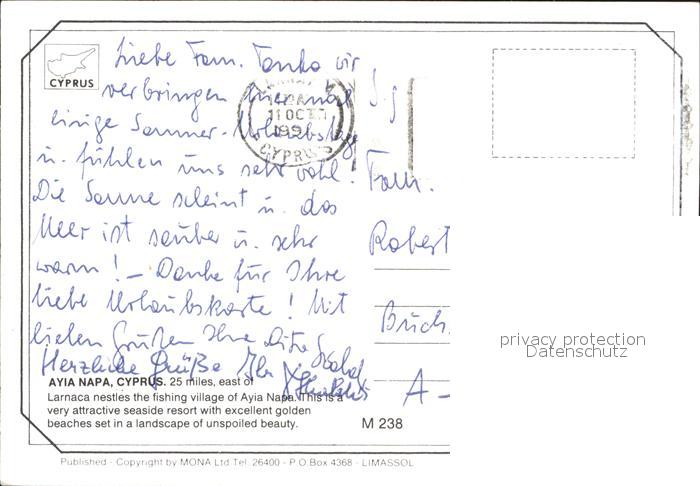 Liebe Fam. Tanka wir
CYPRUS
verbringen hier noch
11 OCT
einige Sommer-Urlaubstage
CYPRUS
u. fühlen uns sehr wohl!
Fam.
Die Sonne scheint u. das
Meer ist sauber u. sehr
Robert
warm! – Danke für Ihre
liebe Urlaubskarte! Mit
Buch
lieben Grüßen Ihre
privacy protection
Datenschutz
Herzliche Grüße Ihr
A –
AYIA NAPA, CYPRUS. 25 miles, east of
Larnaca nestles the fishing village of Ayia Napa. This is a
very attractive seaside resort with excellent golden
beaches set in a landscape of unspoiled beauty.
M 238
Published - Copyright by MONA Ltd Tel. 26400 - P.O.Box 4368 - LIMASSOL